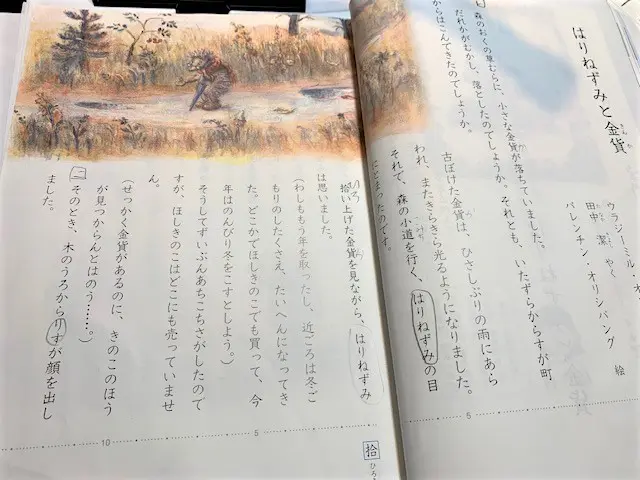 はりねずみと金貨
ウラジーミル
田中 潔 やく
バレンチン・オリシバング 絵
森のおくの草むらに、小さな金貨が落ちていました。
だれかがむかし、落としたのでしょうか。それとも、いたずらからすが町
からはこんできたのでしょうか。
古ぼけた金貨は、ひさしぶりの雨にあら
われ、またきらきら光るようになりました。
それで、森の小道を行く、はりねずみの目
にとまったのです。
5
拾い上げた金貨を見ながら、はりねずみ
は思いました。
(わしももう年を取ったし、近ごろは冬ご
もりのしたくさえ、たいへんになってき
た。どこかでほしきのこでも買って、今
年はのんびり冬をこすとしよう。)
そうしてずいぶんあちこちさがしたので
すが、ほしきのこはどこにも売っていませ
ん。
(せっかく金貨があるのに、きのこのほう
が見つからんとはのう……。)
そのとき、木のうろからりすが顔を出し
ました。
5
10
拾